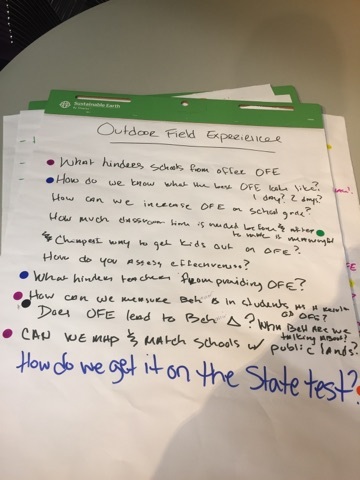 Sustainable Earth
Outdoor Field Experiences
What hinders schools from offer OFE
How do we know what the best OFE looks like?
1 day? 2 days?
How can we increase OFE on school grds?
How much classroom time is needed before & after
to make it meaningful
$ Cheapest way to get kids out on OFE?
How do you assess effectiveness?
What hinders teachers from providing OFE?
How can we measure Beh Δ in students as a result
of OFE?
Does OFE lead to Beh Δ? What Beh are we
talking about?
CAN WE MAP & match schools w/
public lands?
How do we get it on the State test?